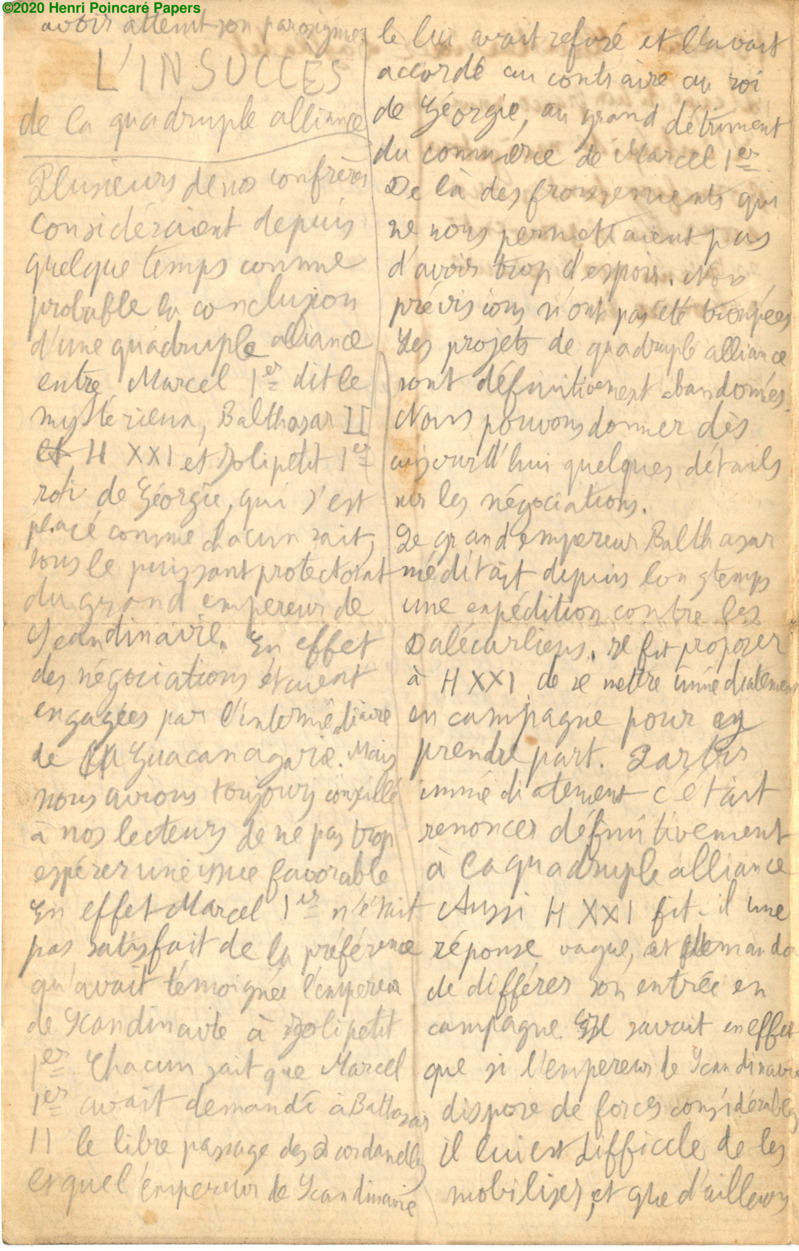 ©2020 Henri Poincaré Papers
avoir atteint son paroxysme
L'INSUCCÈS
de la quadruple alliance
Plusieurs de nos confrères
considéraient depuis
quelque temps comme
probable la conclusion
d'une quadruple alliance
entre Marcel 1er dit le
mystérieux, Balthasar II
et H XXI et Jolipetit 1er
roi de Géorgie, qui s'est
placé comme chacun sait,
sous le puissant protectorat
du grand empereur de
Scandinavie. En effet
des négociations étaient
engagées par l'intermédiaire
de Guacanagarie. Mais
nous avions toujours conseillé
à nos lecteurs de ne pas trop
espérer une issue favorable
En effet Marcel 1er n'était
pas satisfait de la préférence
qu'avait témoignée l'empereur
de Scandinavie à Jolipetit
1er. Chacun sait que Marcel
1er avait demandé à Baltasar
II le libre passage des Dardanelles
et que l'empereur de Scandinavie
le lui avait refusé et l'avait
accordé au contraire au roi
de Géorgie, au grand détriment
du commerce de Marcel 1er.
De là des froissements qui
ne nous permettaient pas
d'avoir trop d'espoir. Nos
prévisions n'ont pas été trompées
Les projets de quadruple alliance
sont définitivement abandonnés.
Nous pouvons donner dès
aujourd'hui quelques détails
sur les négociations.
Le grand empereur Balthasar
méditait depuis longtemps
une expédition contre les
Dalécarliens. Il fit proposer
à H XXI de se mettre immédiatement
en campagne pour y
prendre part. Partir
immédiatement c'était
renoncer définitivement
à la quadruple alliance
Aussi H XXI fit-il une
réponse vague, et demanda
de différer son entrée en
campagne. Il savait en effet
que si l'empereur de Scandinavie
dispose de forces considérables
il lui est difficile de les
mobiliser, et que d'ailleurs